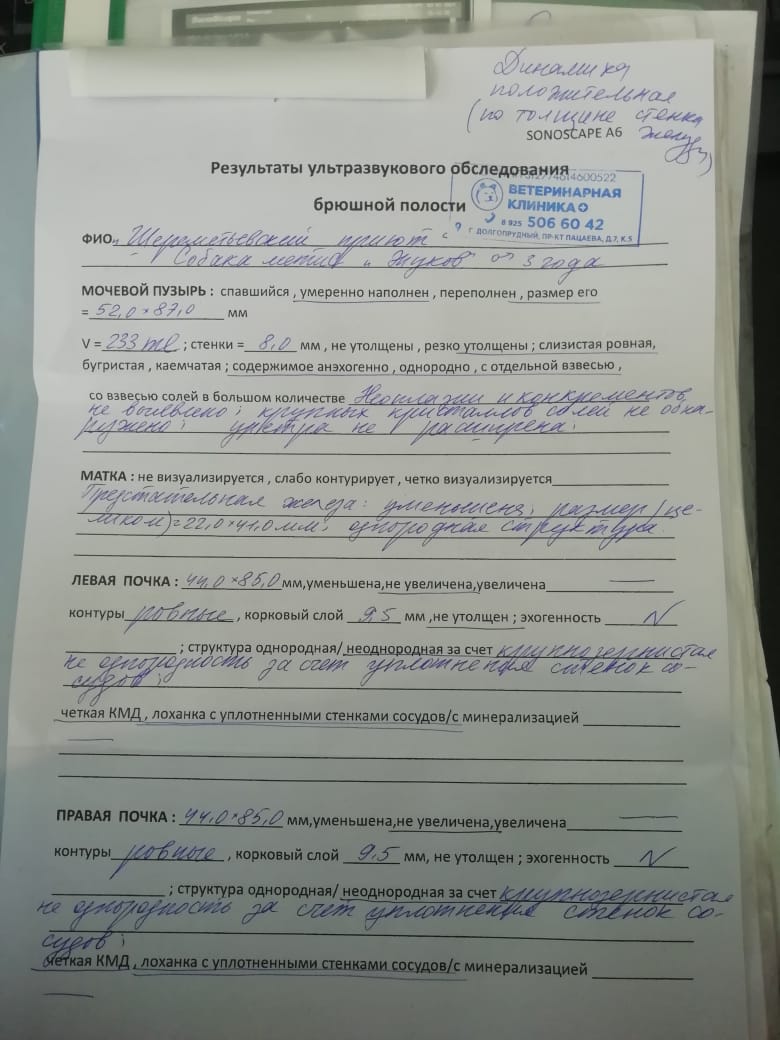 Динамика
положительная
(по толщине стенки
SONOSCAPE A6
Результаты ультразвукового обследования
брюшной полости
ВЕТЕРИНАРНАЯ
КЛИНИКА
8 925 506 60 42
Г. ДОЛГОПРУДНЫЙ, ПР-КТ ПАЦАЕВА, Д.7, К.5
ФИО: Шереметьевский приют
Собака метис "Жуков" 3 года
МОЧЕВОЙ ПУЗЫРЬ : спавшийся , умеренно наполнен , переполнен , размер его
= 52,0×87,0 мм
V = 233 ml ; стенки = 8,0 мм , не утолщены , резко утолщены ; слизистая ровная,
бугристая , каемчатая ; содержимое анэхогенно , однородно , с отдельной взвесью ,
со взвесью солей в большом количестве Неоплазии и конкрементов
не выявлено; крупных кристаллов солей не обна-
ружено; уретра не расширена;
МАТКА : не визуализируется , слабо контурирует , четко визуализируется
Предстательная железа: уменьшена; размер (це-
ликом)=22,0×41,0 мм; однородная структура.
ЛЕВАЯ ПОЧКА : 44,0×85,0 мм,уменьшена,не увеличена,увеличена —
контуры ровные , корковый слой 9,5 мм ,не утолщен ; эхогенность N
; структура однородная/ неоднородная за счет крупнозернистая
не однородность за счет уплотнения стенок со-
судов;
четкая КМД , лоханка с уплотненными стенками сосудов/с минерализацией
—
ПРАВАЯ ПОЧКА : 44,0×85,0 мм,уменьшена,не увеличена,увеличена —
контуры ровные , корковый слой 9,5 мм, не утолщен ; эхогенность N
; структура однородная/ неоднородная за счет крупнозернистая
не однородность за счет уплотнения стенок со-
судов;
четкая КМД , лоханка с уплотненными стенками сосудов/с минерализацией
—